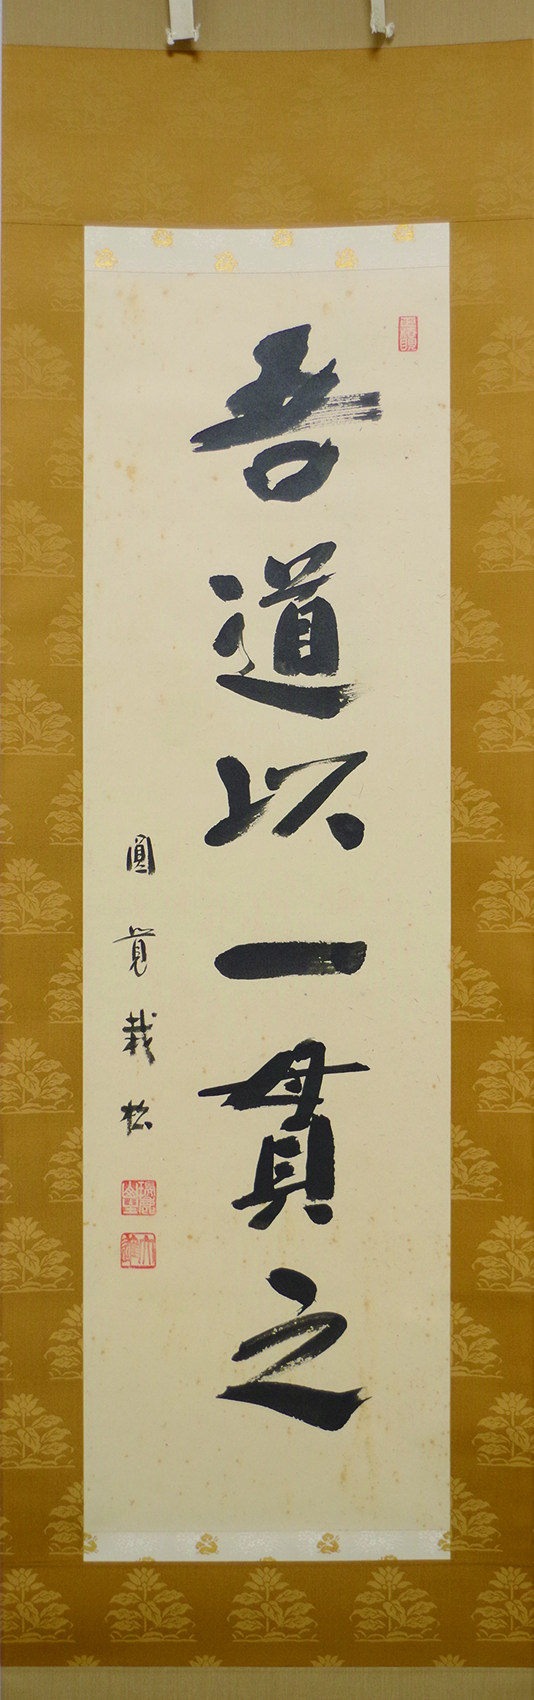 吾道以一貫之
圓覚栽松